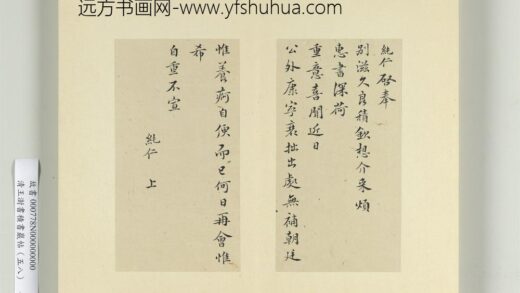 远方书画网-www.yfshuhua.com
純仁啓奉
別滋久良積欽想介来煩
惠書深荷
重意喜聞近日
公外康寧衰拙出處無補朝廷
惟養痾自便而已何日再會惟
希
自重不宣
純仁 上
故書 000778N000000000
清王澍書積書巖帖(五八)